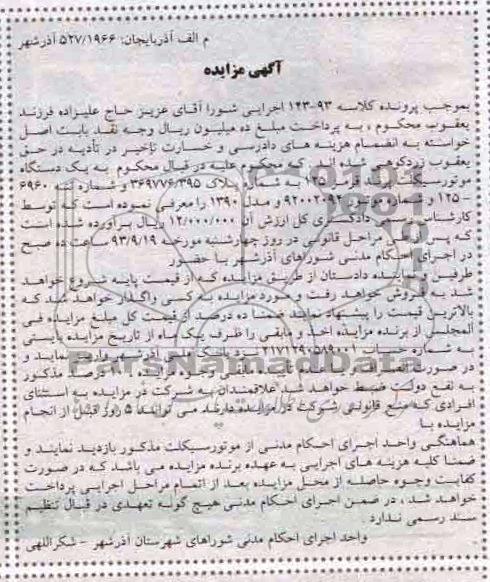 م الف آذربایجان: ۵۲۷/۱۹۶۶ آذرشهر
آگهی مزایده
بموجب پرونده کلاسه ۹۳-۱۴۳ اجرایی شورا آقای عزیز حاج علیزاده فرزند
یعقوب محکوم ، به پرداخت مبلغ ده میلیون ریال وجه نقد بابت اصل
خواسته به انضمام هزینه های دادرسی و خسارت تاخیر در تأدیه در حق
یعقوب زردکوهی شده اند . که محکوم علیه در قبال محکوم به یک دستگاه
موتورسیکلت پرند قرمز ۱۲۵ به شماره پلاک ۳۶۹۷۷۶/۳۹۵ و شماره تنه ۶۹۶۰
- ۱۲۵ و شماره موتور ۹۲۰۰۲۰۹۲ و مدل ۱۳۹۰ را معرفی نموده است که توسط
کارشناس رسمی دادگستری کل ارزش آن ۱۲/۰۰۰/۰۰۰ ریال برآورده شده است
که پس از طی مراحل قانونی در روز چهارشنبه مورخه ۹۳/۹/۱۹ ساعت ده صبح
در اجرای احکام مدنی شوراهای آذرشهر با حضور
طرفین و نماینده دادستان از طریق مزایده که از قیمت پایه شروع خواهد
شد به فروش خواهد رفت و مورد مزایده به کسی واگذار خواهد شد که
بالاترین قیمت را پیشنهاد نمایند ضمنا ده درصد از قیمت کل مبلغ مزایده فی
المجلس از برنده مزایده اخذ و مابقی را ظرف یک ماه از تاریخ مزایده بایستی
به شماره حساب نزد بانک ملی آذرشهر واریز نماید و
در صورت ده درصد مذکور
به نفع دولت ضبط خواهد شد علاقمندان به شرکت در مزایده به استثنای
افرادی که منع قانونی شرکت در مزایده دارند می توانند ۵ روز قبل از انجام
مزایده با
هماهنگی واحد اجرای احکام مدنی از موتورسیکلت مذکور بازدید نمایند و
ضمنا کلیه هزینه های اجرایی به عهده برنده مزایده می باشد که در صورت
کفایت وجوه حاصله از محل مزایده بعد از اتمام مراحل اجرایی پرداخت
خواهد شد ، در ضمن اجرای احکام مدنی هیچ گونه تعهدی در قبال تنظیم
سند رسمی ندارد .
واحد اجرای احکام مدنی شوراهای شهرستان آذرشهر - شکراللهی
ParsNamadData